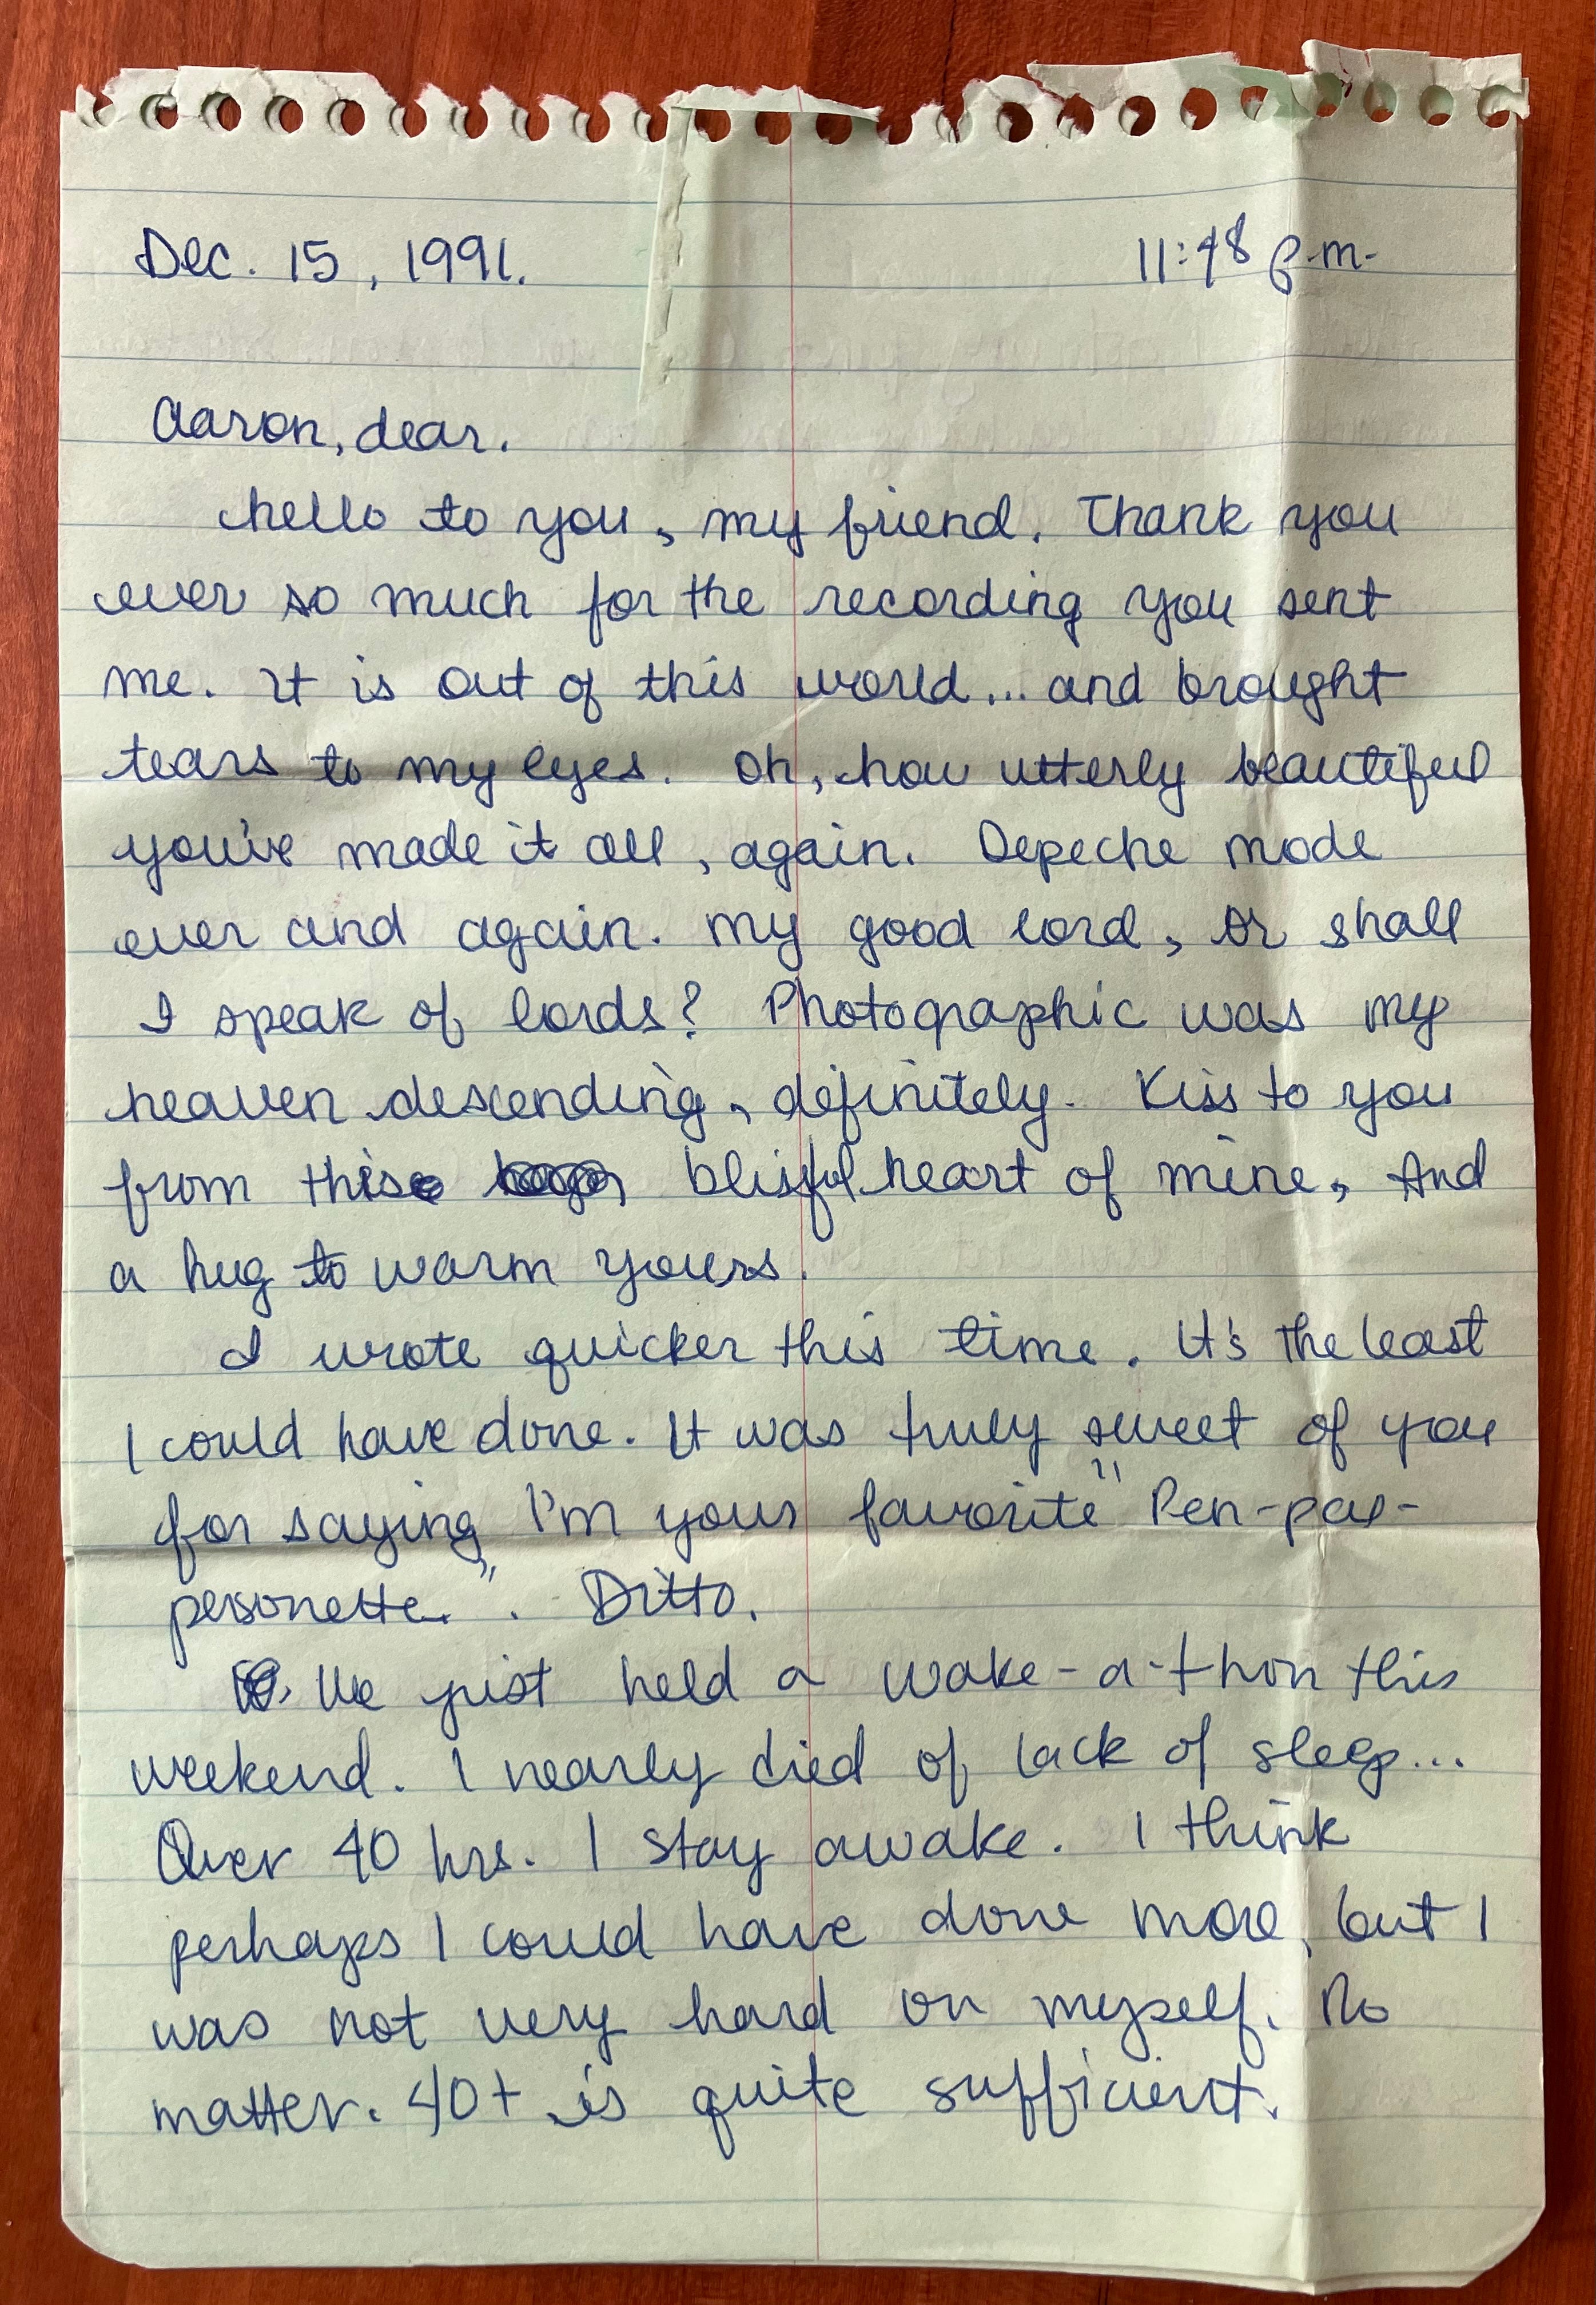 Dec. 15, 1991. 11:48 p.m.
Aaron, dear.
hello to you, my friend. Thank you
ever so much for the recording you sent
me. It is out of this world... and brought
tears to my eyes. Oh, how utterly beautiful
you've made it all, again. Depeche mode
ever and again. My good lord, or shall
I speak of lords? Photographic was my
heaven descending, definitely. Kiss to you
from this blissful heart of mine, And
a hug to warm yours.
I wrote quicker this time. It's the least
I could have done. It was truly sweet of you
for saying I'm your favorite "Pen-pal-
personette". Ditto.
We just held a wake-a-thon this
weekend. I nearly died of lack of sleep...
Over 40 hrs. I stay awake. I think
perhaps I could have done more, but I
was not very hard on myself. No
matter. 40+ is quite sufficient.